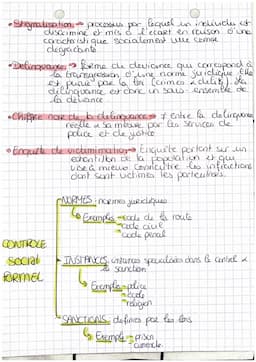 • Stigmatisation → processus par lequel un individu est
discriminé et mis à l'écart en raison d'une
caractéristique socialement vue comme
dégradante
• Délinquance → forme de déviance qui correspond à
la transgression d'une norme juridique. Elle
est punie par la loi (crimes & délits). La
délinquance est donc un sous-ensemble de
la déviance
• Chiffre noir de la délinquance → ≠ entre la délinquance
réelle & sa mesure par les services de
police et de justice
• Enquête de victimation → Enquête portant sur un
échantillon de la population et qui
vise à mieux connaître les infractions
dont sont victimes les particuliers.
NORMES : normes juridiques
Exemples → code de la route
code civil
code pénal
CONTRÔLE
SOCIAL
FORMEL
INSTANCES : instances spécialisées dans le contrôle &
la sanction
Exemple → police
école
religion
SANCTIONS : définies par les lois
Exemple → prison
amende